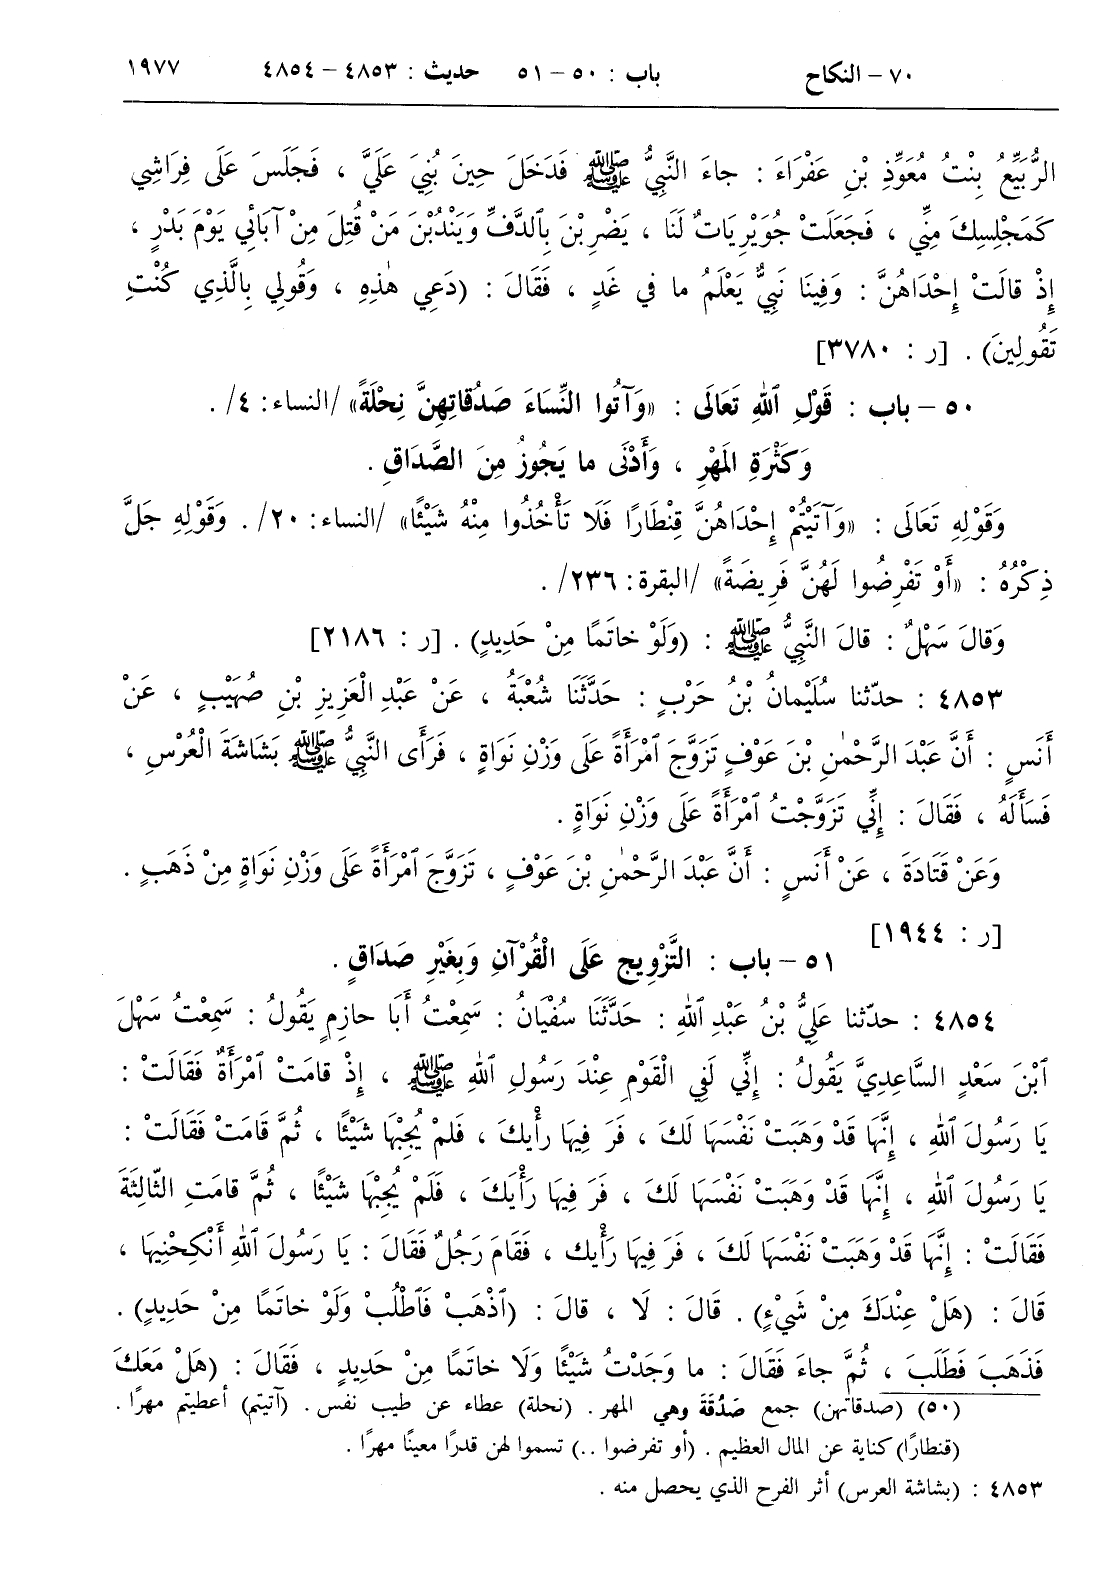 ٧٠ – النكاح باب : ٥٠ – ٥١ حديث : ٤٨٥٣ – ٤٨٥٤ ١٩٧٧
الرُّبَيِّعُ بِنْتُ مُعَوِّذِ بْنِ عَفْرَاءَ : جاءَ النَّبِيُّ ﷺ فَدَخَلَ حِينَ بُنِيَ عَلَيَّ ، فَجَلَسَ عَلَى فِرَاشِي
كَمَجْلِسِكَ مِنِّي ، فَجَعَلَتْ جُوَيْرِيَاتٌ لَنَا ، يَضْرِبْنَ بِٱلدَّفِّ وَيَنْدُبْنَ مَنْ قُتِلَ مِنْ آبَائِي يَوْمَ بَدْرٍ ،
إِذْ قالَتْ إِحْدَاهُنَّ : وَفِينَا نَبِيٌّ يَعْلَمُ ما في غَدٍ ، فَقَالَ : (دَعِي هٰذِهِ ، وَقُولِي بِالَّذِي كُنْتِ
تَقُولِينَ) . [ر : ٣٧٨٠]
٥٠ – باب : قَوْلِ ٱللهِ تَعَالَى : «وَآتُوا النِّسَاءَ صَدُقاتِهِنَّ نِحْلَةً» /النساء: ٤/ .
وَكَثْرَةِ المَهْرِ ، وَأَدْنَى ما يَجُوزُ مِنَ الصَّدَاقِ .
وَقَوْلِهِ تَعَالَى : «وَآتَيْتُمْ إِحْدَاهُنَّ قِنْطَارًا فَلَا تَأْخُذُوا مِنْهُ شَيْئًا» /النساء: ٢٠/ . وَقَوْلِهِ جَلَّ
ذِكْرُهُ : «أَوْ تَفْرِضُوا لَهُنَّ فَرِيضَةً» /البقرة: ٢٣٦/ .
وَقالَ سَهْلٌ : قالَ النَّبِيُّ ﷺ : (وَلَوْ خاتَمًا مِنْ حَدِيدٍ) . [ر : ٢١٨٦]
٤٨٥٣ : حدّثنا سُلَيْمانُ بْنُ حَرْبٍ : حَدَّثَنَا شُعْبَةُ ، عَنْ عَبْدِ الْعَزِيزِ بْنِ صُهَيْبٍ ، عَنْ
أَنَسٍ : أَنَّ عَبْدَ الرَّحْمٰنِ بْنَ عَوْفٍ تَزَوَّجَ ٱمْرَأَةً عَلَى وَزْنِ نَوَاةٍ ، فَرَأَى النَّبِيُّ ﷺ بَشَاشَةَ الْعُرْسِ ،
فَسَأَلَهُ ، فَقَالَ : إِنِّي تَزَوَّجْتُ ٱمْرَأَةً عَلَى وَزْنِ نَوَاةٍ .
وَعَنْ قَتَادَةَ ، عَنْ أَنَسٍ : أَنَّ عَبْدَ الرَّحْمٰنِ بْنَ عَوْفٍ ، تَزَوَّجَ ٱمْرَأَةً عَلَى وَزْنِ نَوَاةٍ مِنْ ذَهَبٍ .
[ر : ١٩٤٤]
٥١ – باب : التَّزْوِيجِ عَلَى الْقُرْآنِ وَبِغَيْرِ صَدَاقٍ .
٤٨٥٤ : حدّثنا عَلِيُّ بْنُ عَبْدِ ٱللهِ : حَدَّثَنَا سُفْيَانُ : سَمِعْتُ أَبَا حازِمٍ يَقُولُ : سَمِعْتُ سَهْلَ
ٱبْنَ سَعْدٍ السَّاعِدِيَّ يَقُولُ : إِنِّي لَفِي الْقَوْمِ عِنْدَ رَسُولِ ٱللهِ ﷺ ، إِذْ قامَتْ ٱمْرَأَةٌ فَقَالَتْ :
يَا رَسُولَ ٱللهِ ، إِنَّهَا قَدْ وَهَبَتْ نَفْسَهَا لَكَ ، فَرَ فِيهَا رَأْيكَ ، فَلمْ يُجِبْهَا شَيْئًا ، ثُمَّ قامَتْ فَقَالَتْ :
يَا رَسُولَ ٱللهِ ، إِنَّهَا قَدْ وَهَبَتْ نَفْسَهَا لَكَ ، فَرَ فِيهَا رَأْيَكَ ، فَلَمْ يُجِبْهَا شَيْئًا ، ثُمَّ قامَتِ الثَّالِثَةَ
فَقَالَتْ : إِنَّهَا قَدْ وَهَبَتْ نَفْسَهَا لَكَ ، فَرَ فِيهَا رَأْيك ، فَقَامَ رَجُلٌ فَقَالَ : يَا رَسُولَ ٱللهِ أَنْكِحْنِيهَا ،
قَالَ : (هَلْ عِنْدَكَ مِنْ شَيْءٍ) . قَالَ : لَا ، قالَ : (ٱذْهَبْ فَٱطْلُبْ وَلَوْ خاتَمًا مِنْ حَدِيدٍ) .
فَذَهَبَ فَطَلَبَ ، ثُمَّ جاءَ فَقَالَ : ما وَجَدْتُ شَيْئًا وَلَا خاتَمًا مِنْ حَدِيدٍ ، فَقَالَ : (هَلْ مَعَكَ
(٥٠) (صدقاتهن) جمع صَدُقَةَ وهي المهر . (نحلة) عطاء عن طيب نفس . (آتيتم) أعطيتم مهرًا .
(قنطارًا) كناية عن المال العظيم . (أو تفرضوا ..) تسموا لهن قدرًا معينًا مهرًا .
٤٨٥٣ : (بشاشة العرس) أثر الفرح الذي يحصل منه .